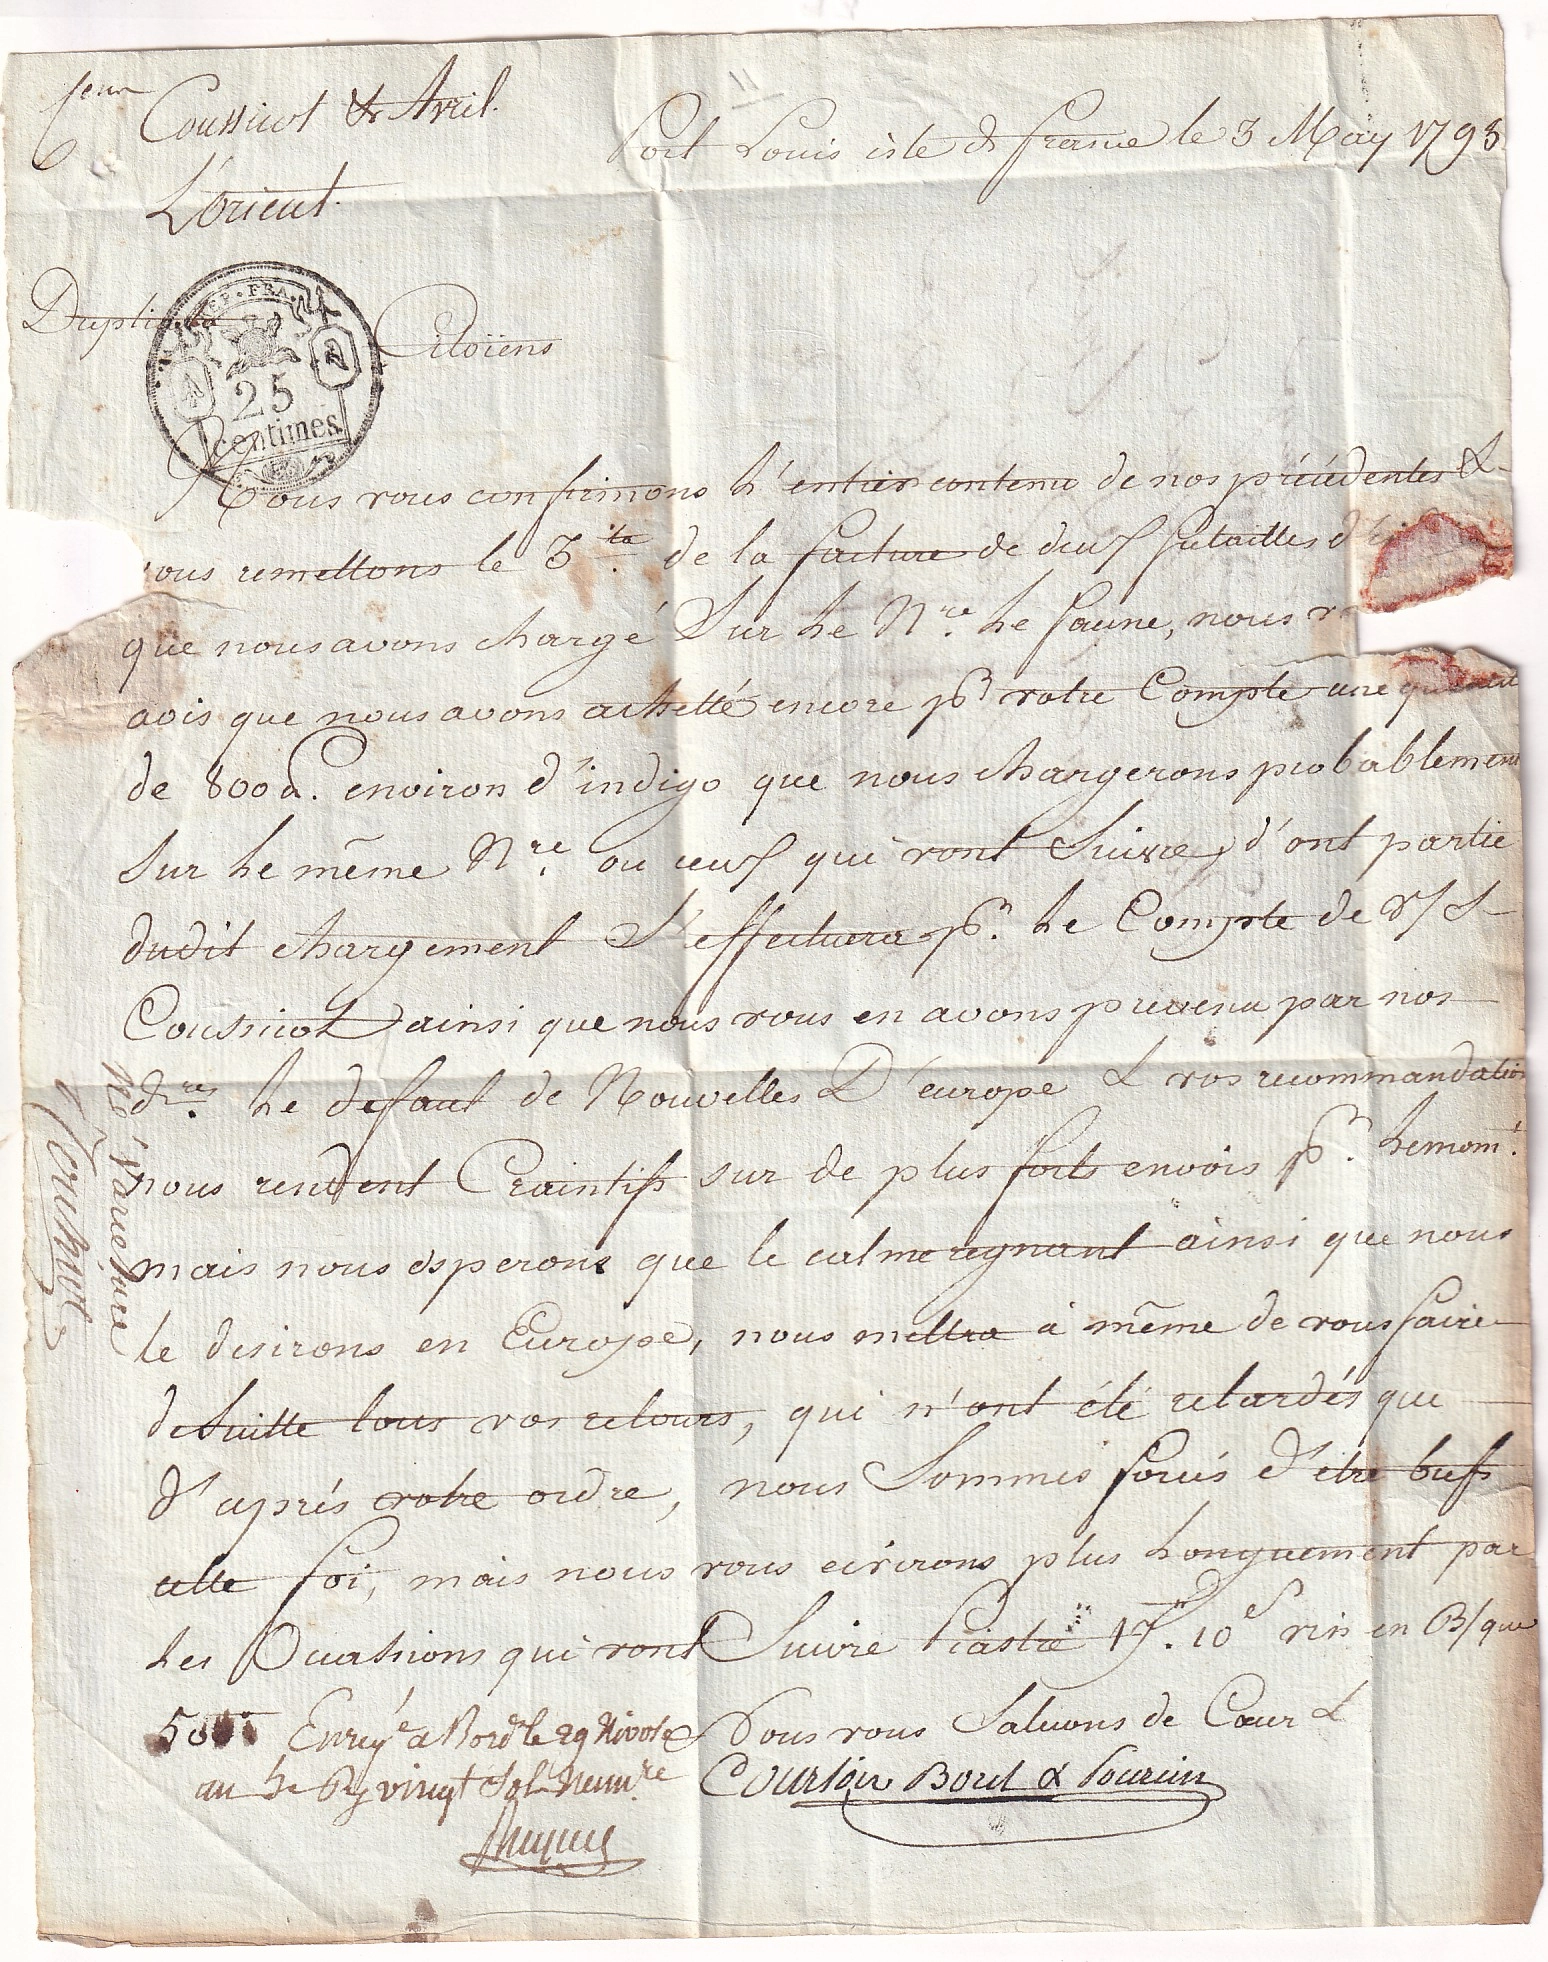 Coussicot & Avril.
Port Louis isle de france le 3 May 1793
L'orient.
Duplicata
REP. FRA.
25
centimes
Citoiens
Nous vous confirmons l'entier contenu de nos précédentes &
vous remettons le 3.ta de la facture de deux futailles d'
que nous avons chargé Sur le N.re le faune, nous
avis que nous avons achetté encore pr votre Compte une quantité
de 800 environ d'indigo que nous chargerons probablement
Sur le même N.re ou ceux qui vont Suivre, d'ont partie
dudit chargement S'effectuera pr. le Compte de
Coussicot ainsi que nous vous en avons prevenu par nos
dres. le defaut de Nouvelles D'europe & vos recommandation
nous rendent Craintifs sur de plus forts envois pr. le mom.t
mais nous esperons que le calme regnant ainsi que nous
le desirons en Europe, nous mettra à même de vous faire
de Suitte tous vos retours, qui n'ont été retardés que
d'aprés votre ordre, nous Sommes forcés d'etre brefs
cette foi, mais nous vous ecrirons plus longuement par
les Occassions qui vont Suivre Piastre 17. 10s en B/que
Nous vous Saluons de Cœur &
Enreg.é a Bord.x le 29 Nivose
an vingt Sols Num.re